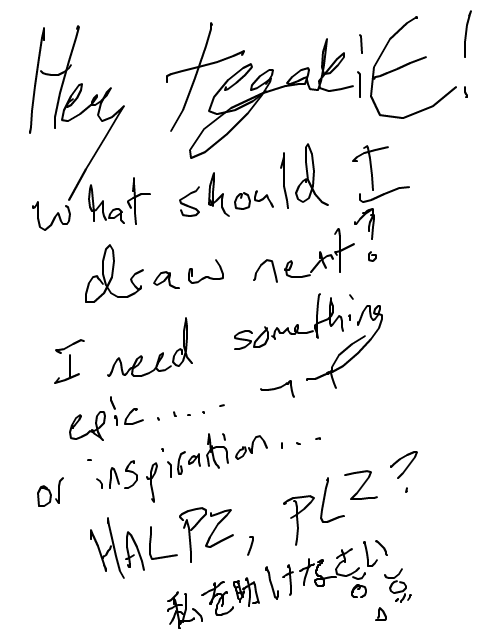 Hey tegakiE!
what should I
draw next?
I need something
epic.....
or inspiration...
HALPZ, PLZ?
私を助けなさい